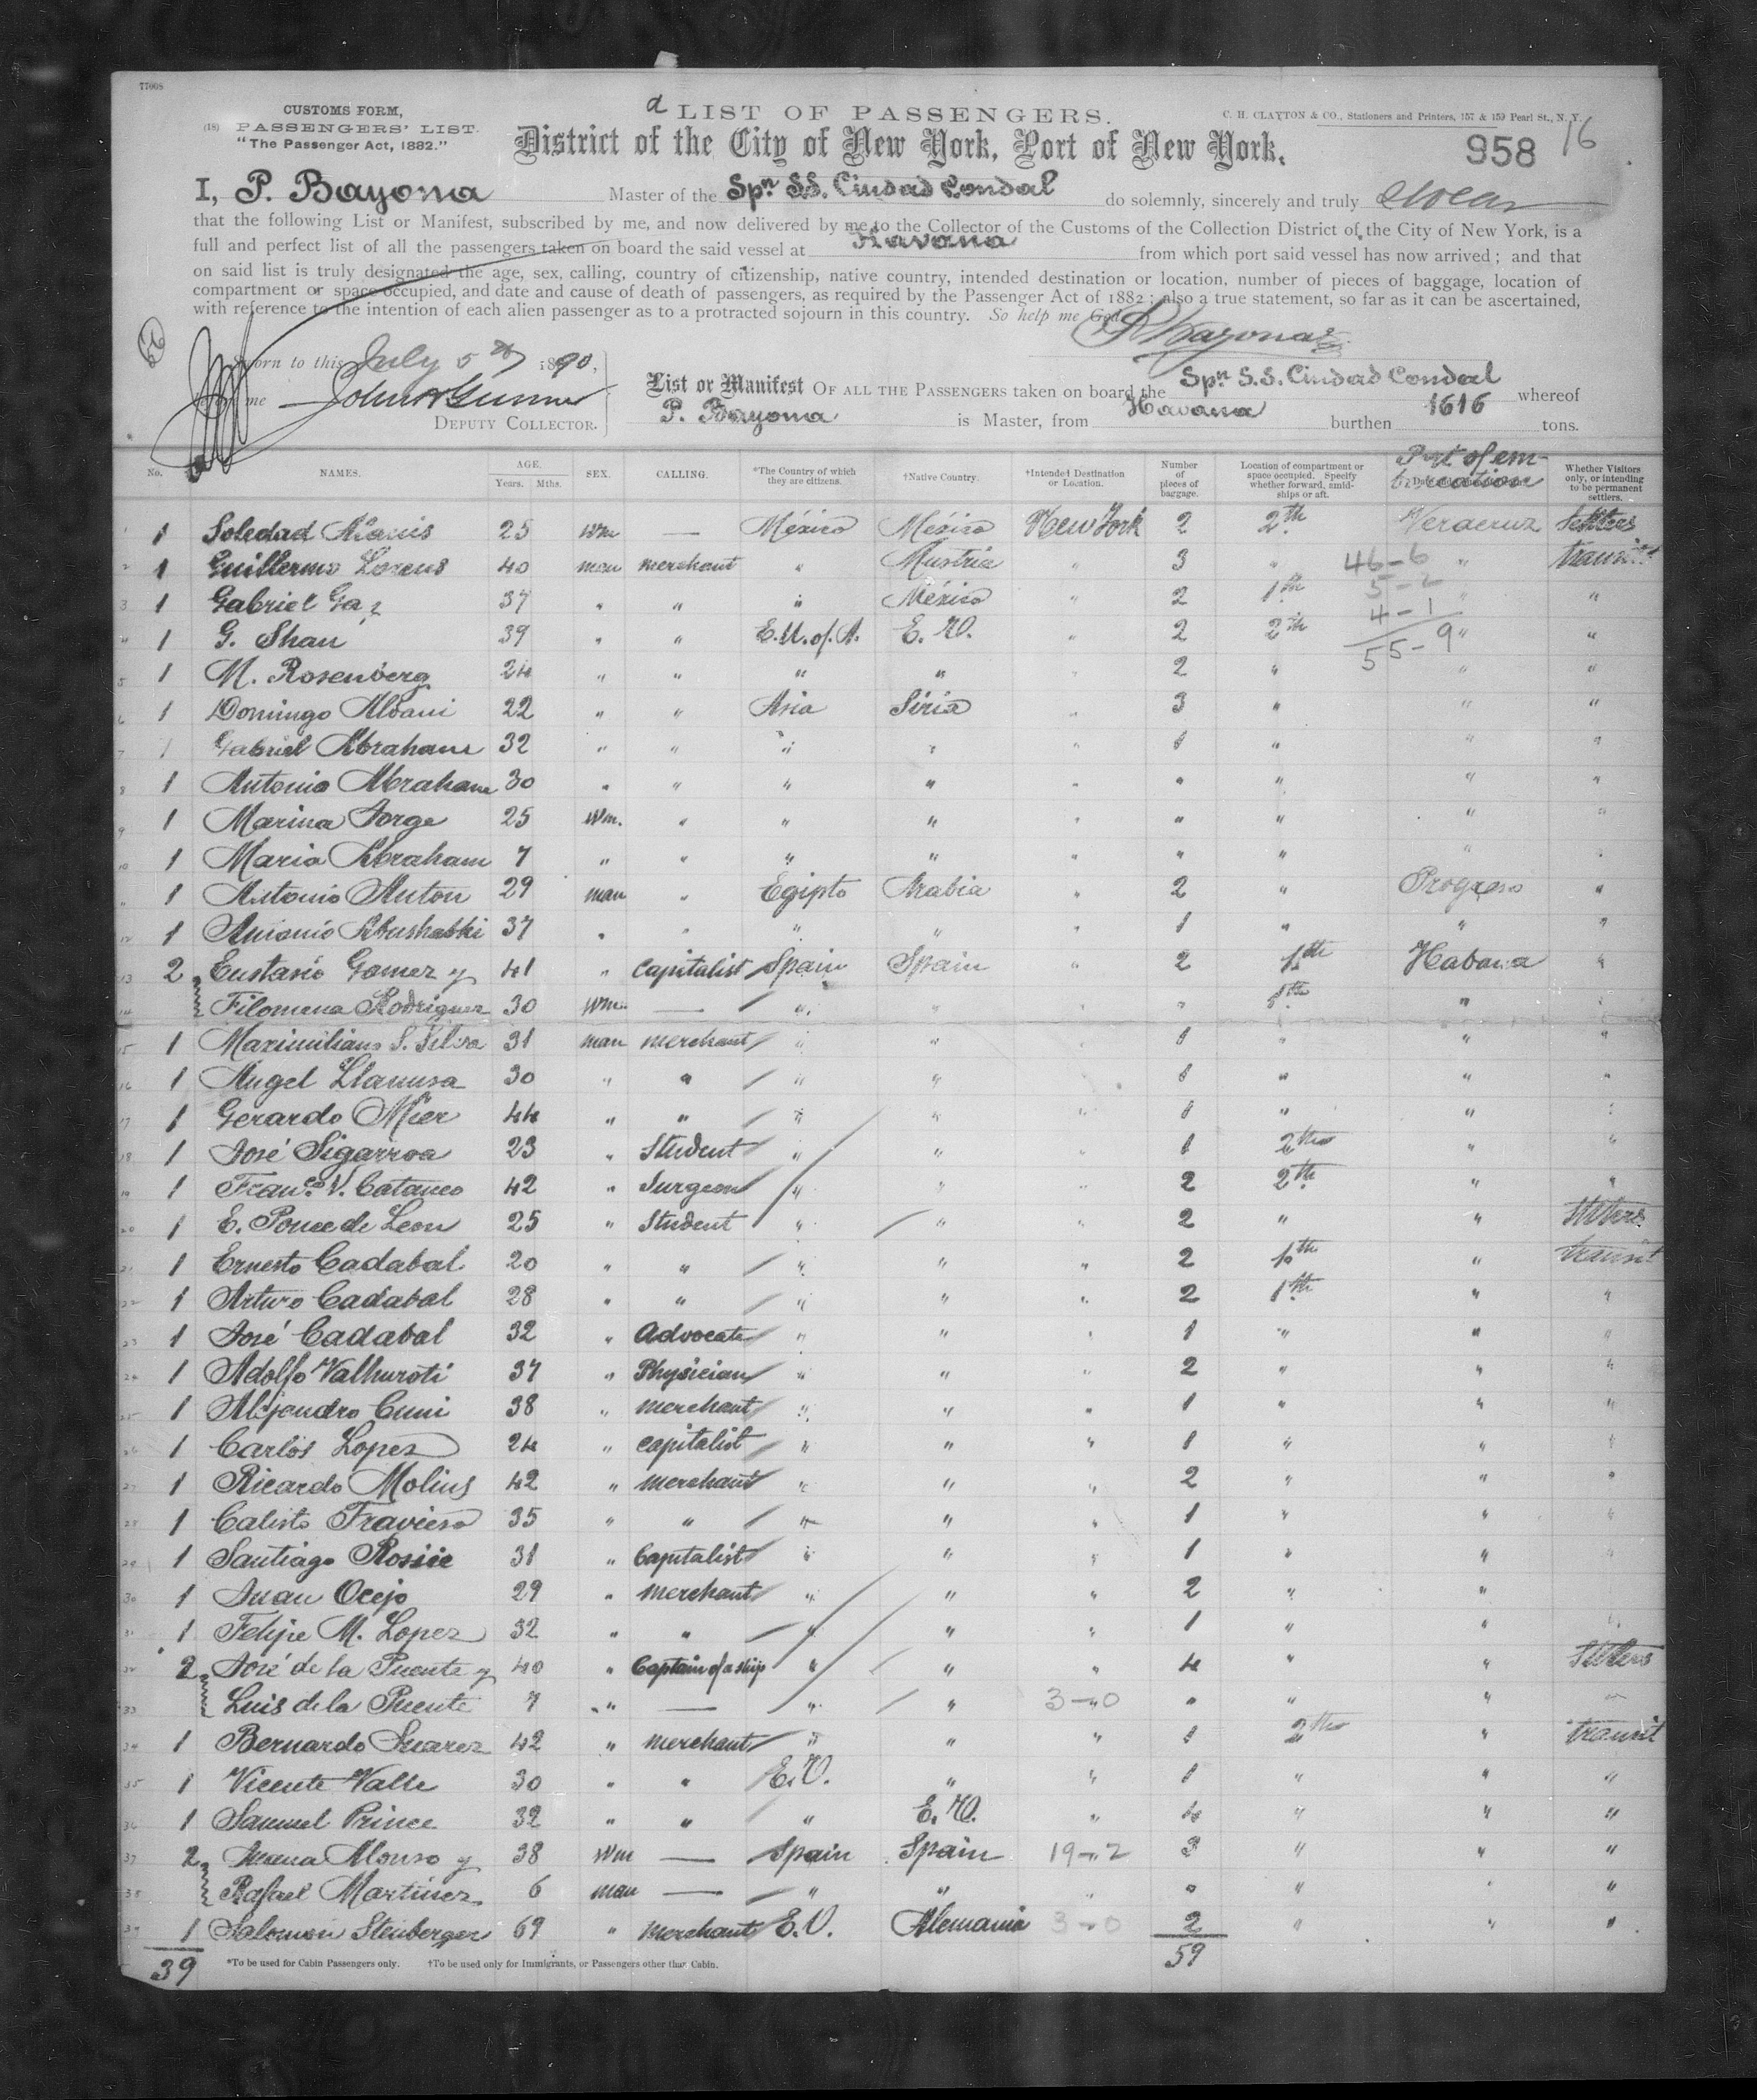 77008
CUSTOMS FORM,
(18) PASSENGERS' LIST.
"The Passenger Act, 1882."
d LIST OF PASSENGERS.
C. H. CLAYTON & CO., Stationers and Printers, 157 & 159 Pearl St., N. Y.
District of the City of New York, Port of New York.
958 16
I, P. Bayona Master of the Spn. SS. Ciudad Condal do solemnly, sincerely and truly swear
that the following List or Manifest, subscribed by me, and now delivered by me to the Collector of the Customs of the Collection District of the City of New York, is a
full and perfect list of all the passengers taken on board the said vessel at Havana from which port said vessel has now arrived; and that
on said list is truly designated the age, sex, calling, country of citizenship, native country, intended destination or location, number of pieces of baggage, location of
compartment or space occupied, and date and cause of death of passengers, as required by the Passenger Act of 1882; also a true statement, so far as it can be ascertained,
with reference to the intention of each alien passenger as to a protracted sojourn in this country. So help me God.
P Bayona
Sworn to this July 5th 1890,
me
DEPUTY COLLECTOR.
List or Manifest OF ALL THE PASSENGERS taken on board the Spn S.S. Ciudad Condal whereof
P. Bayona is Master, from Havana burthen 1616 tons.
No. NAMES. AGE. Years. Mths. SEX. CALLING. *The Country of which they are citizens. †Native Country. †Intended Destination or Location. Number of pieces of baggage. Location of compartment or space occupied. Specify whether forward, amidships or aft. Port of embarcation Whether Visitors only, or intending to be permanent settlers.
1 1 Soledad 25 wm — México México New York 2 2th Veracruz Settlers
2 1 Guillermo Lorens 40 man merchant " Austria " 3 " 46-6 " transit
3 1 Gabriel Gaz 37 " " " México " 2 1th 5-2 " "
4 1 G. Shan 39 " " E.U. of A. E. U. " 2 2th 4-1 " "
55-9
5 1 M. Rosenberg 24 " " " " " 2 " " "
6 1 Domingo Albani 22 " " Asia Siria " 3 " " "
7 1 Gabriel Abraham 32 " " " " " 1 " " "
8 1 Antonio Abraham 30 " " " " " " " " "
9 1 Marina Jorge 25 wm. " " " " " " " "
10 1 Maria Abraham 7 " " " " " " " " "
11 1 Antonio Anton 29 man " Egipto Arabia " 2 " Progreso "
12 1 Antonio 37 " " " " " 1 " " "
13 2 Eustasio Gomez y 41 " capitalist Spain Spain " 2 1th Habana "
14 Filomena Rodriguez 30 wm. — " " " " 1th " "
15 1 Maximiliano S. 31 man merchant " " " 1 " " "
16 1 Angel Llanusa 30 " " " " " 1 " " "
17 1 Gerardo Mier 44 " " " " " 1 " " "
18 1 José Sigarroa 23 " Student " " " 1 2th " "
19 1 Franco. V. Cataneo 42 " Surgeon " " " 2 2th " "
20 1 E. Ponce de Leon 25 " Student " " " 2 " " Settlers
21 1 Ernesto Cadabal 20 " " " " " 2 1th " transit
22 1 Arturo Cadabal 28 " " " " " 2 1th " "
23 1 José Cadabal 32 " Advocate " " " 1 " " "
24 1 Adolfo Valhuroti 37 " Physician " " " 2 " " "
25 1 Alejandro Cuni 38 " merchant " " " 1 " " "
26 1 Carlos Lopez 24 " capitalist " " " 1 " " "
27 1 Ricardo Molins 42 " merchant " " " 2 " " "
28 1 Calisto Travieso 35 " " " " " 1 " " "
29 1 Santiago 31 " Capitalist " " " 1 " " "
30 1 Juan Ocejo 29 " merchant " " " 2 " "
31 1 Felipe M. Lopez 32 " " " " 1 " " "
32 2 José de la Puente y 40 " Captain of a ship " " " 4 " " Settlers
33 Luis de la Puente 7 " — " " 3-0 " " " "
34 1 Bernardo Suarez 42 " merchant " " " 1 2th " transit
35 1 Vicente Valle 30 " " E.U. " " 1 " " "
36 1 Samuel Prince 32 " " " E.U. " 4 " " "
37 2 Juana Alonso y 38 wm — Spain Spain 19-2 3 " " "
38 Rafael Martinez 6 man — " " " " " " "
39 1 Salomon Steuberger 69 " merchant E.U. Alemania 3-0 2 " " "
39 59
*To be used for Cabin Passengers only. †To be used only for Immigrants, or Passengers other than Cabin.